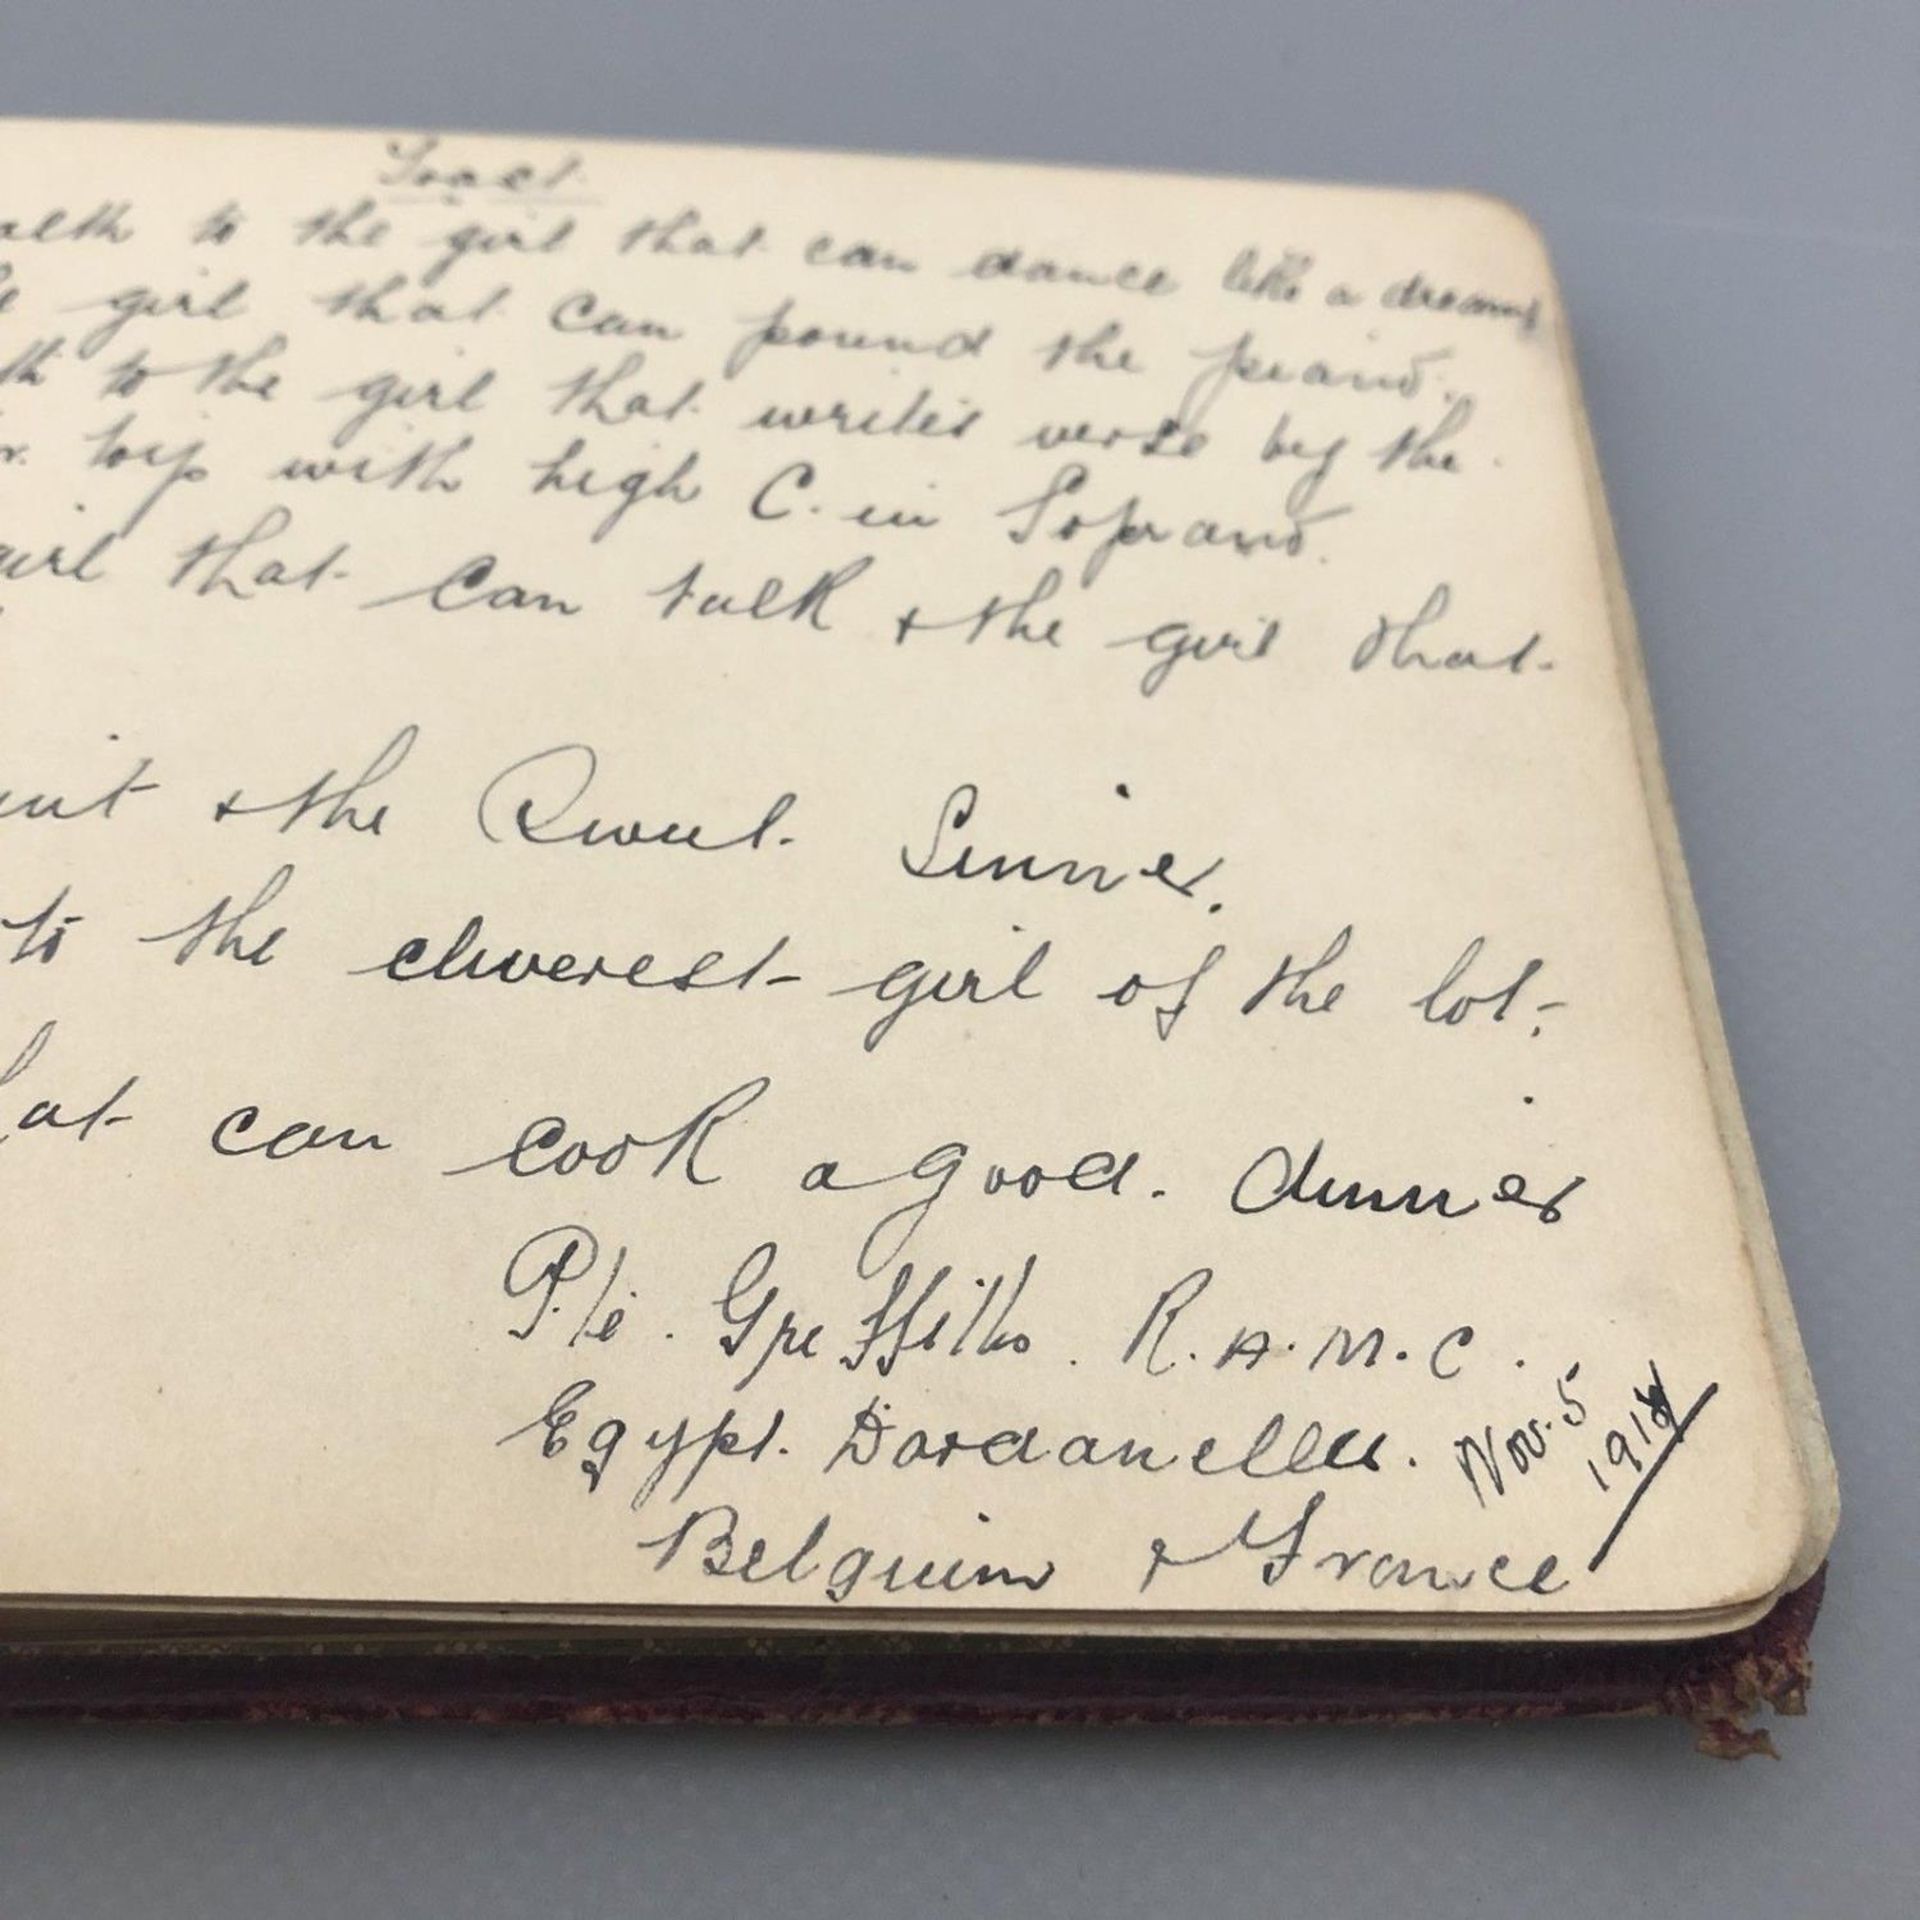 Toast.
ealth to the girl that can dance like a dream,
girl that can pound the piano.
th to the girl that writes verse by the
toy with high C. in Soprano.
girl that can talk & the girl that
& the Sweet Sinner.
to the cleverest girl of the lot,
hat can cook a good. dinner
Pte. Griffiths. R.A.M.C.
Egypt. Dardanelles.
Belguim & France
Nov. 5
1918